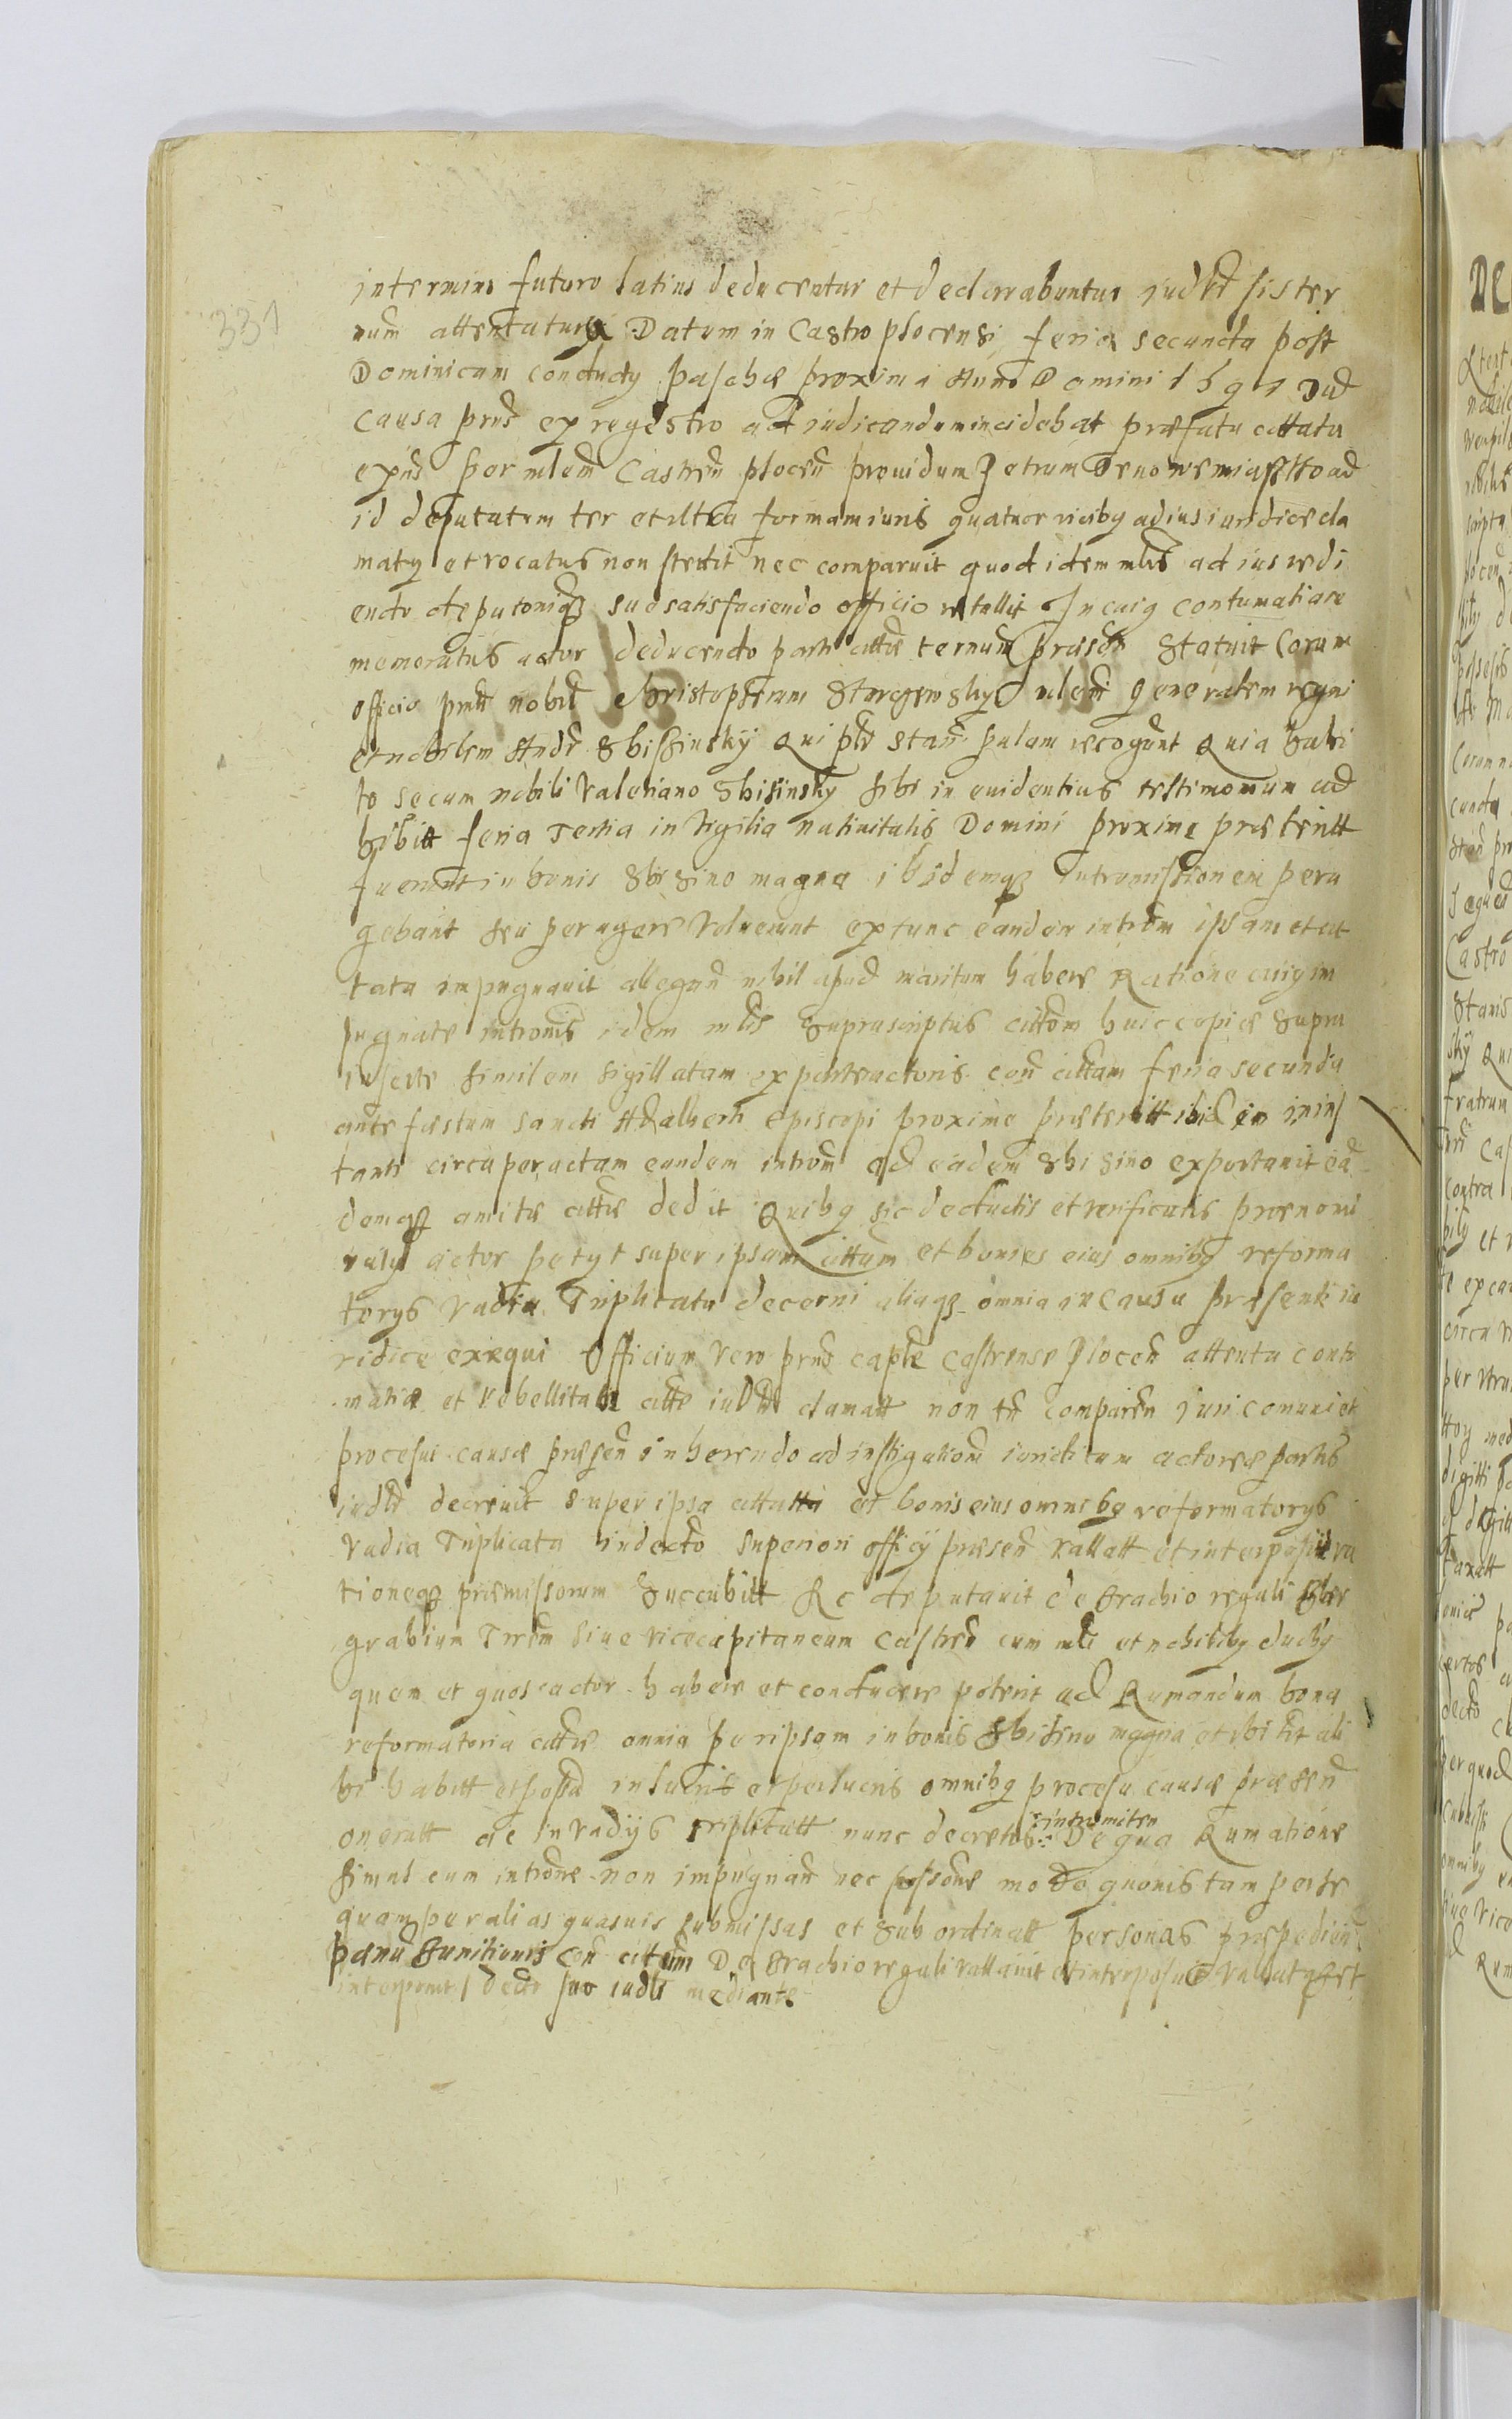 331
in termino futuro latius deducentur et declarabuntur iudlr sis ter
num attentatura Datum in Castro plocensi feria secunda post
Dominicam conductus paschæ proxima Anno Domini 1591 Dud
causa pns ex regestro ad iudicandum incidebat præfata cittata
expns per mlem Castren plocen prouidum Petrum Denowemiastko ad
id deputatum ter et vltra formam iuris quatuor vicibus ad ius iuridice cla
matus et vocatus non stetit nec comparuit quod idem mlis ad ius redi
endo deputoriique suo satisfaciendo officio retullit In cuius contumatia re
memoratus actor deducendo parti cittæ ternum præsens statuit Coram
officio pnti nobil Christopherum mlem generalem regni
et nobilem Andr Sbissinsky qui plr stan palam recognt Quia habi
to secum nobili Valeriano Sbisinsky sibi in euidentius testimonium ad
hibitt feria Tertia in vigilia natiuitatis Domini proxime præteritt
fuerunt in bonis Sbisino magna ibidemque Intromissionem pera
gebant seu peragere voluerunt extunc eandem introm ipsamet cit
tata impugnauit allegan nihil apud maritum habere Ratione cuius im
pugnatæ intromis idem mlis suprascriptus cittom huic copiæ supra
insertæ similem sigillatam ex parte actoris con cittam feria secunda
ante festum sancti Adalberti episcopi proxime præteritt ibidem in ins
tanti circa peractam eandem introm ad eadem Sbisino exportauit ea
demque amitæ cittæ dedit Quibus sic deductis et verificatis prænomi
natus actor petyt super ipsam cittam et bonis eius omnibus reforma
torys vadia Triplicata decerni aliaque omnia in causa præsenti iu
ridice exequi Officium vero prns caple castrense Plocen attenta contu
matia et rebellitate cittæ iudlr clamatt non tn comparen iuri comuni et
procesui causæ præsen inherendo ad instigationem iuridicam actoreæ partis
iudlr decreuit super ipsa cittatta et bonis eius omnibus reformatorys
vadia Triplicata indecto superiori officy præsen vallatt et interposita ra
tioneque præmissorum succubitt Ac deputauit de brachio regali Bur
grabium Trrem siue vicecapitaneum castren cum mli et nobilibus duobus
quem et quos actor habere et conducere poterit ad Rumandum bona
reformatoria cittæ omnia per ipsam in bonis Sbisino magna et vbi tlt ali
bi habitt et possa in lucris et perlucris omnibus procesu causæ præsen
oneratt ac in vadijs triplicatt nunc decretis intromitten De qua Rumatione
simul cum introne non impugnan nec modo quouis tam per se
quam per alias quasuis submissas et subordinatt personas præpedien
pœna banitionis con cittam De brachio regali vallauit et interposuit
interponit decto suo iudlr mediante